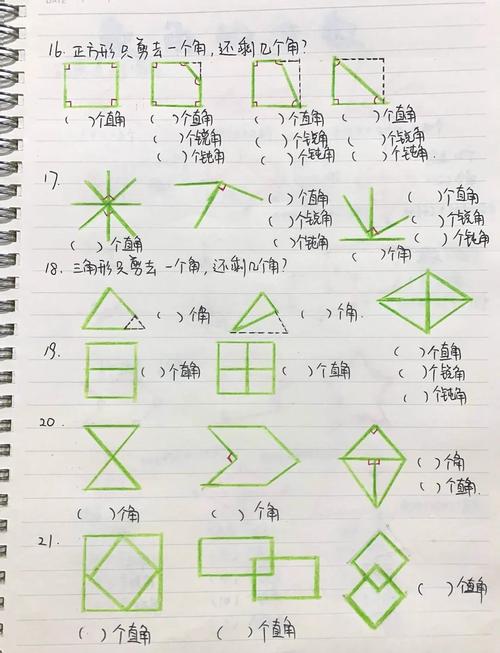 16. 正方形只剪去一个角,还剩几个角?
( )个直角 ( )个直角 ( )个直角 ( )个直角
( )个锐角 ( )个锐角 ( )个锐角
( )个钝角 ( )个钝角 ( )个钝角
17.
( )个直角 ( )个直角
( )个锐角 ( )个锐角
( )个直角 ( )个钝角 ( )个钝角
( )个角
18. 三角形只剪去一个角,还剩几个角?
( )个角 ( )个角
19.
( )个直角
( )个直角 ( )个直角 ( )个锐角
( )个钝角
20.
( )个角
( )个直角.
( )个角 ( )个角
21.
( )个直角
( )个直角 ( )个直角